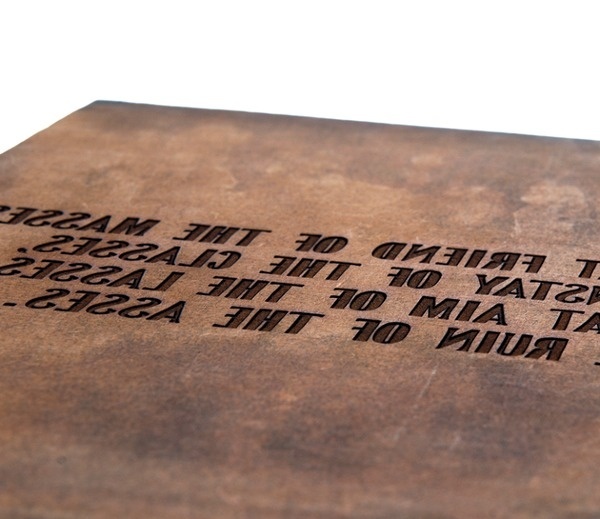 T FRIEND OF THE MASSES
NSTAY OF THE CLASSES.
AT AIM OF THE LASSES
RUIN OF THE ASSES.